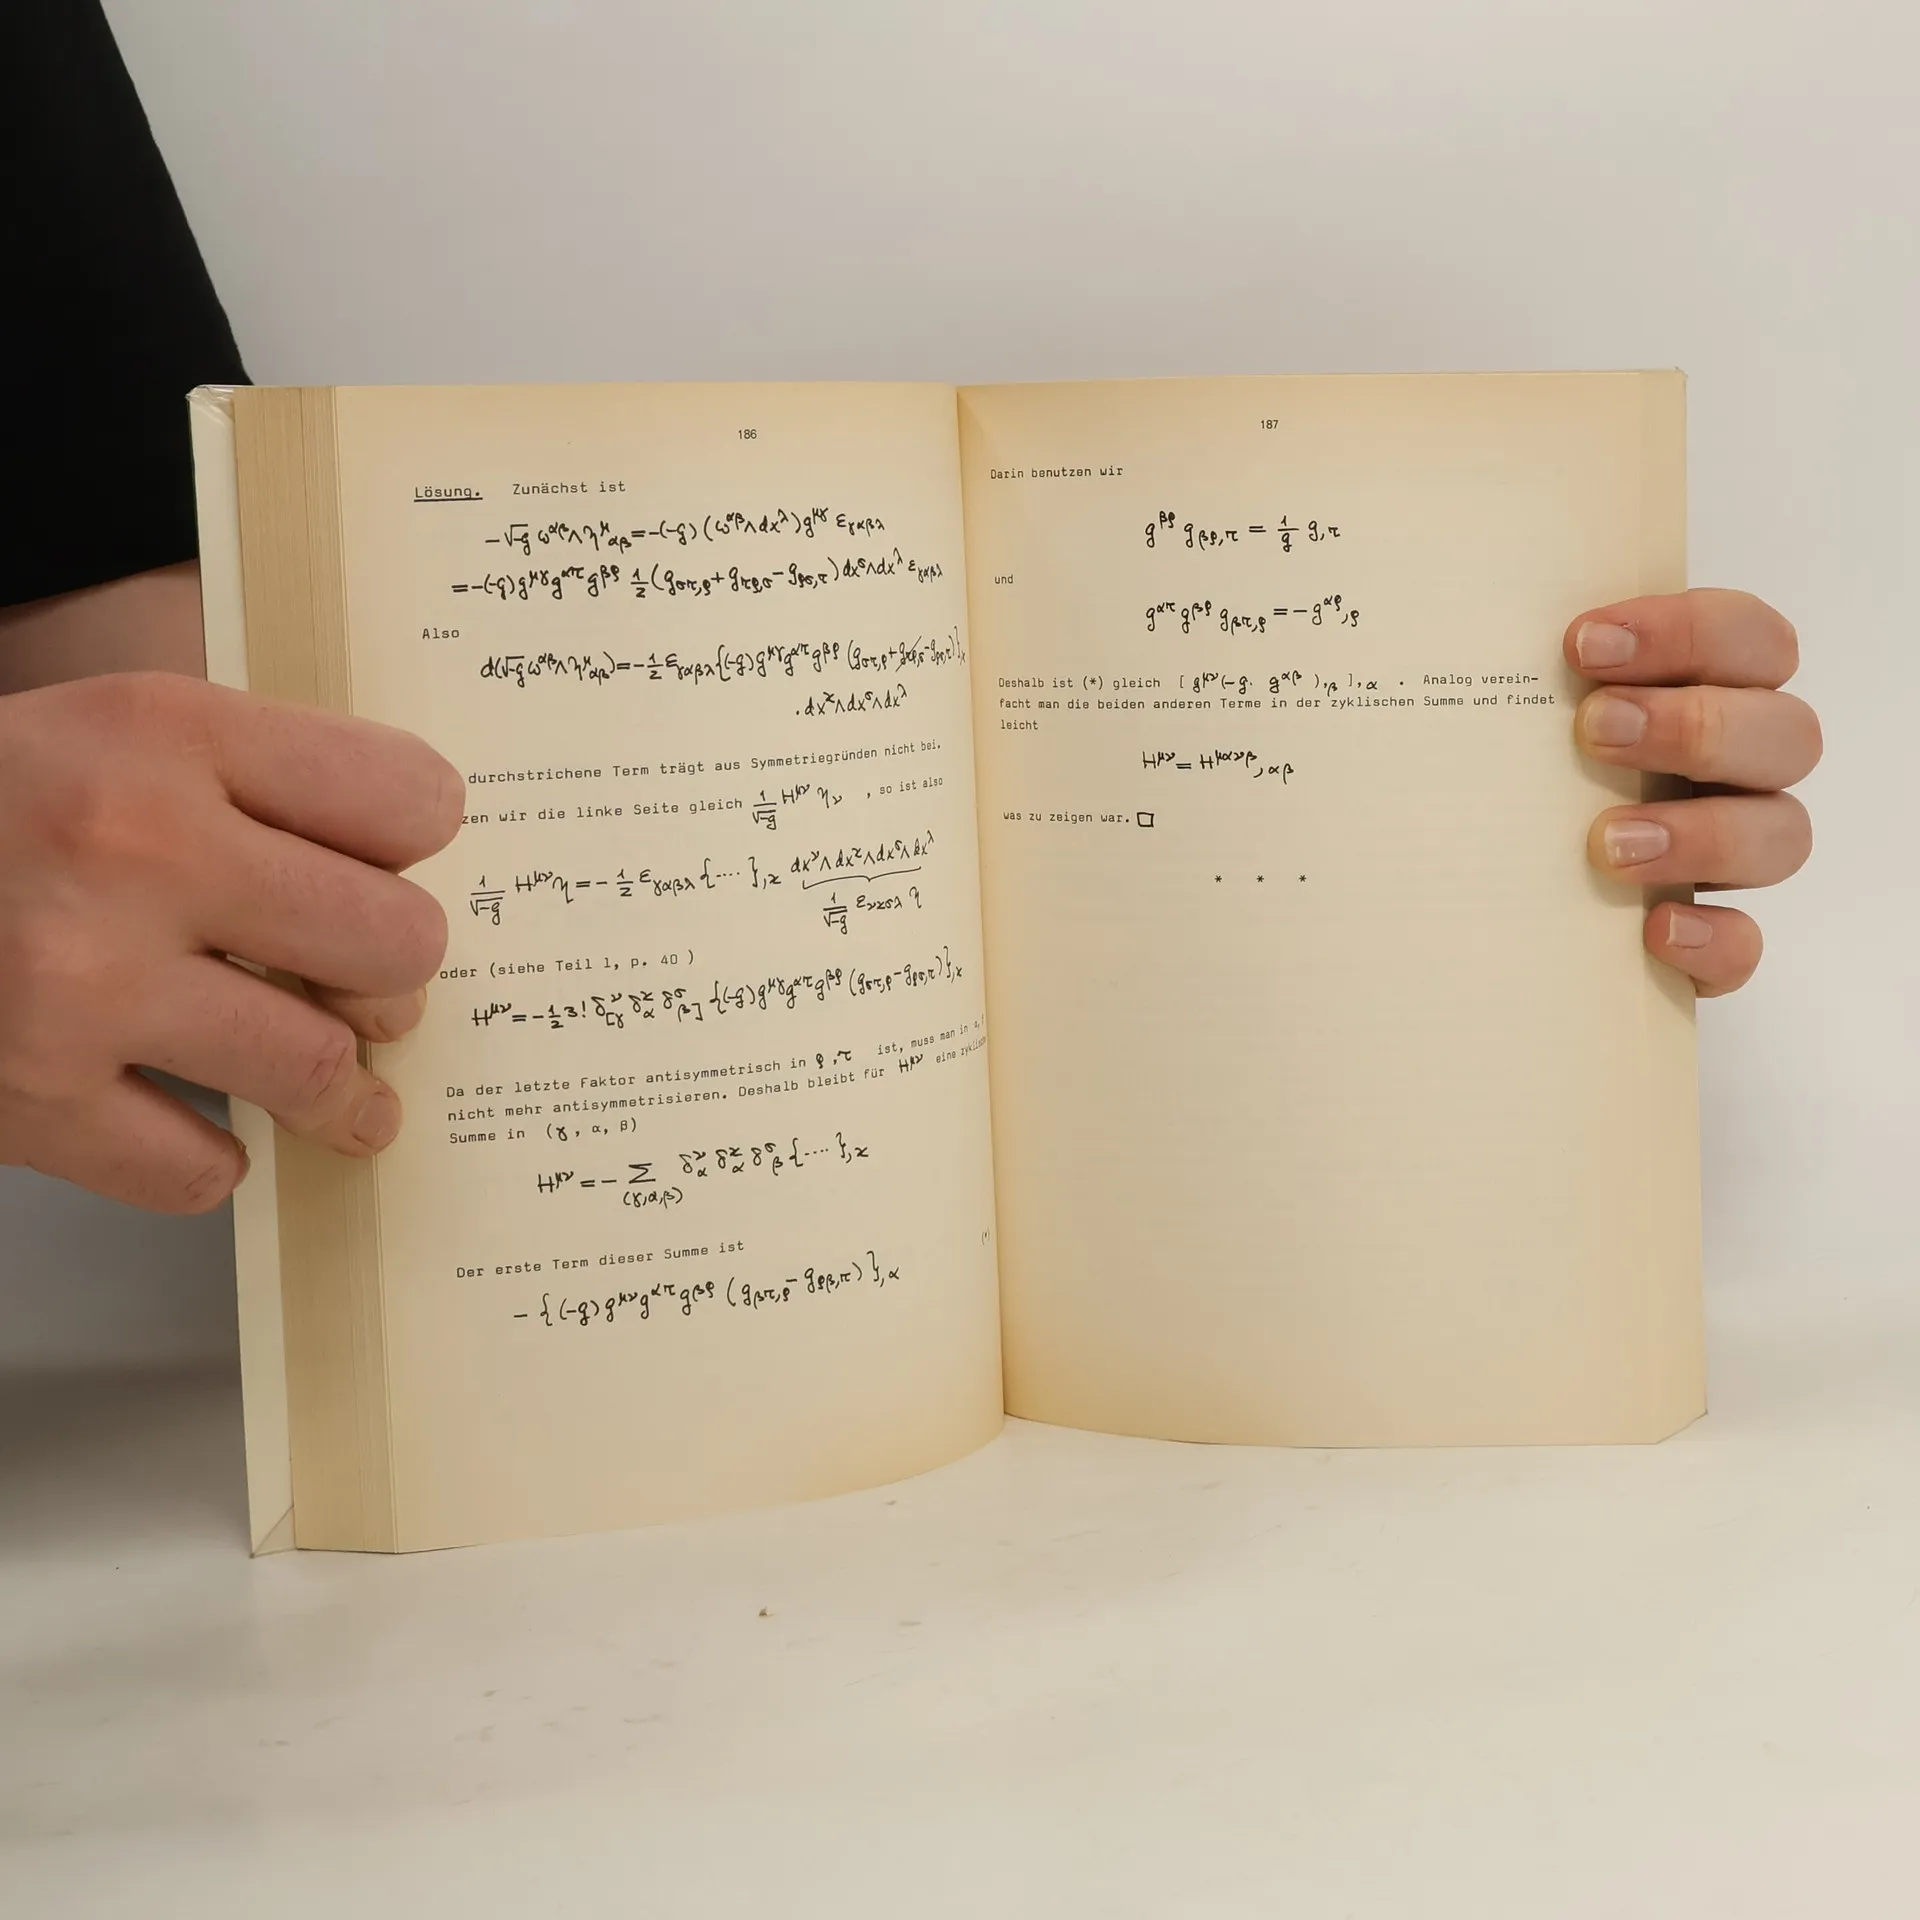 186
Lösung. Zunächst ist
−√-g ω^{αβ}∧η^μ_{αβ}=−(−g)(ω^{αβ}∧dx^λ)g^{μγ} ε_{γαβλ}
=−(−g)g^{μγ}g^{απ}g^{βρ} 1/2(g_{σπ,ρ}+g_{πρ,σ}−g_{ρσ,π})dx^σ∧dx^λ ε_{γαβλ}
Also
d(√-g ω^{αβ}∧η^μ_{αβ})=−1/2 ε_{γαβλ}{(−g)g^{μγ}g^{απ}g^{βρ}(g_{σπ,ρ}+g_{πρ,σ}−g_{ρσ,π})}_{,ϰ}
.dx^ϰ∧dx^σ∧dx^λ
durchstrichene Term trägt aus Symmetriegründen nicht bei.
zen wir die linke Seite gleich 1/√-g H^{μν} η_ν , so ist also
1/√-g H^{μν}η=−1/2 ε_{γαβλ}{····}_{,ϰ} dx^ν∧dx^ϰ∧dx^σ∧dx^λ
1/√-g ε_{νϰσλ} η
oder (siehe Teil 1, p. 40 )
H^{μν}=−1/2 3! δ^ν_{[γ} δ^ϰ_α δ^σ_{β]} {(−g)g^{μγ}g^{απ}g^{βρ}(g_{σπ,ρ}−g_{ρσ,π})}_{,ϰ}
Da der letzte Faktor antisymmetrisch in ρ,π ist, muss man in α,
nicht mehr antisymmetrisieren. Deshalb bleibt für H^{μν} eine
Summe in (γ, α, β)
H^{μν}=−Σ_{(γ,α,β)} δ^ν_α δ^ϰ_α δ^σ_β {····}_{,ϰ}
Der erste Term dieser Summe ist
(*)
−{(−g)g^{μν}g^{απ}g^{βρ}(g_{βπ,ρ}−g_{ρβ,π})}_{,α}
187
Darin benutzen wir
g^{βρ} g_{βρ,π} = 1/g g_{,π}
und
g^{απ}g^{βρ} g_{βπ,ρ}=−g^{αρ}_{,ρ}
Deshalb ist (*) gleich [ g^{μν}(−g· g^{αβ} )_{,β} ]_{,α} . Analog verein-
facht man die beiden anderen Terme in der zyklischen Summe und findet
leicht
H^{μν}= H^{μανβ}_{,αβ}
was zu zeigen war. □
* * *